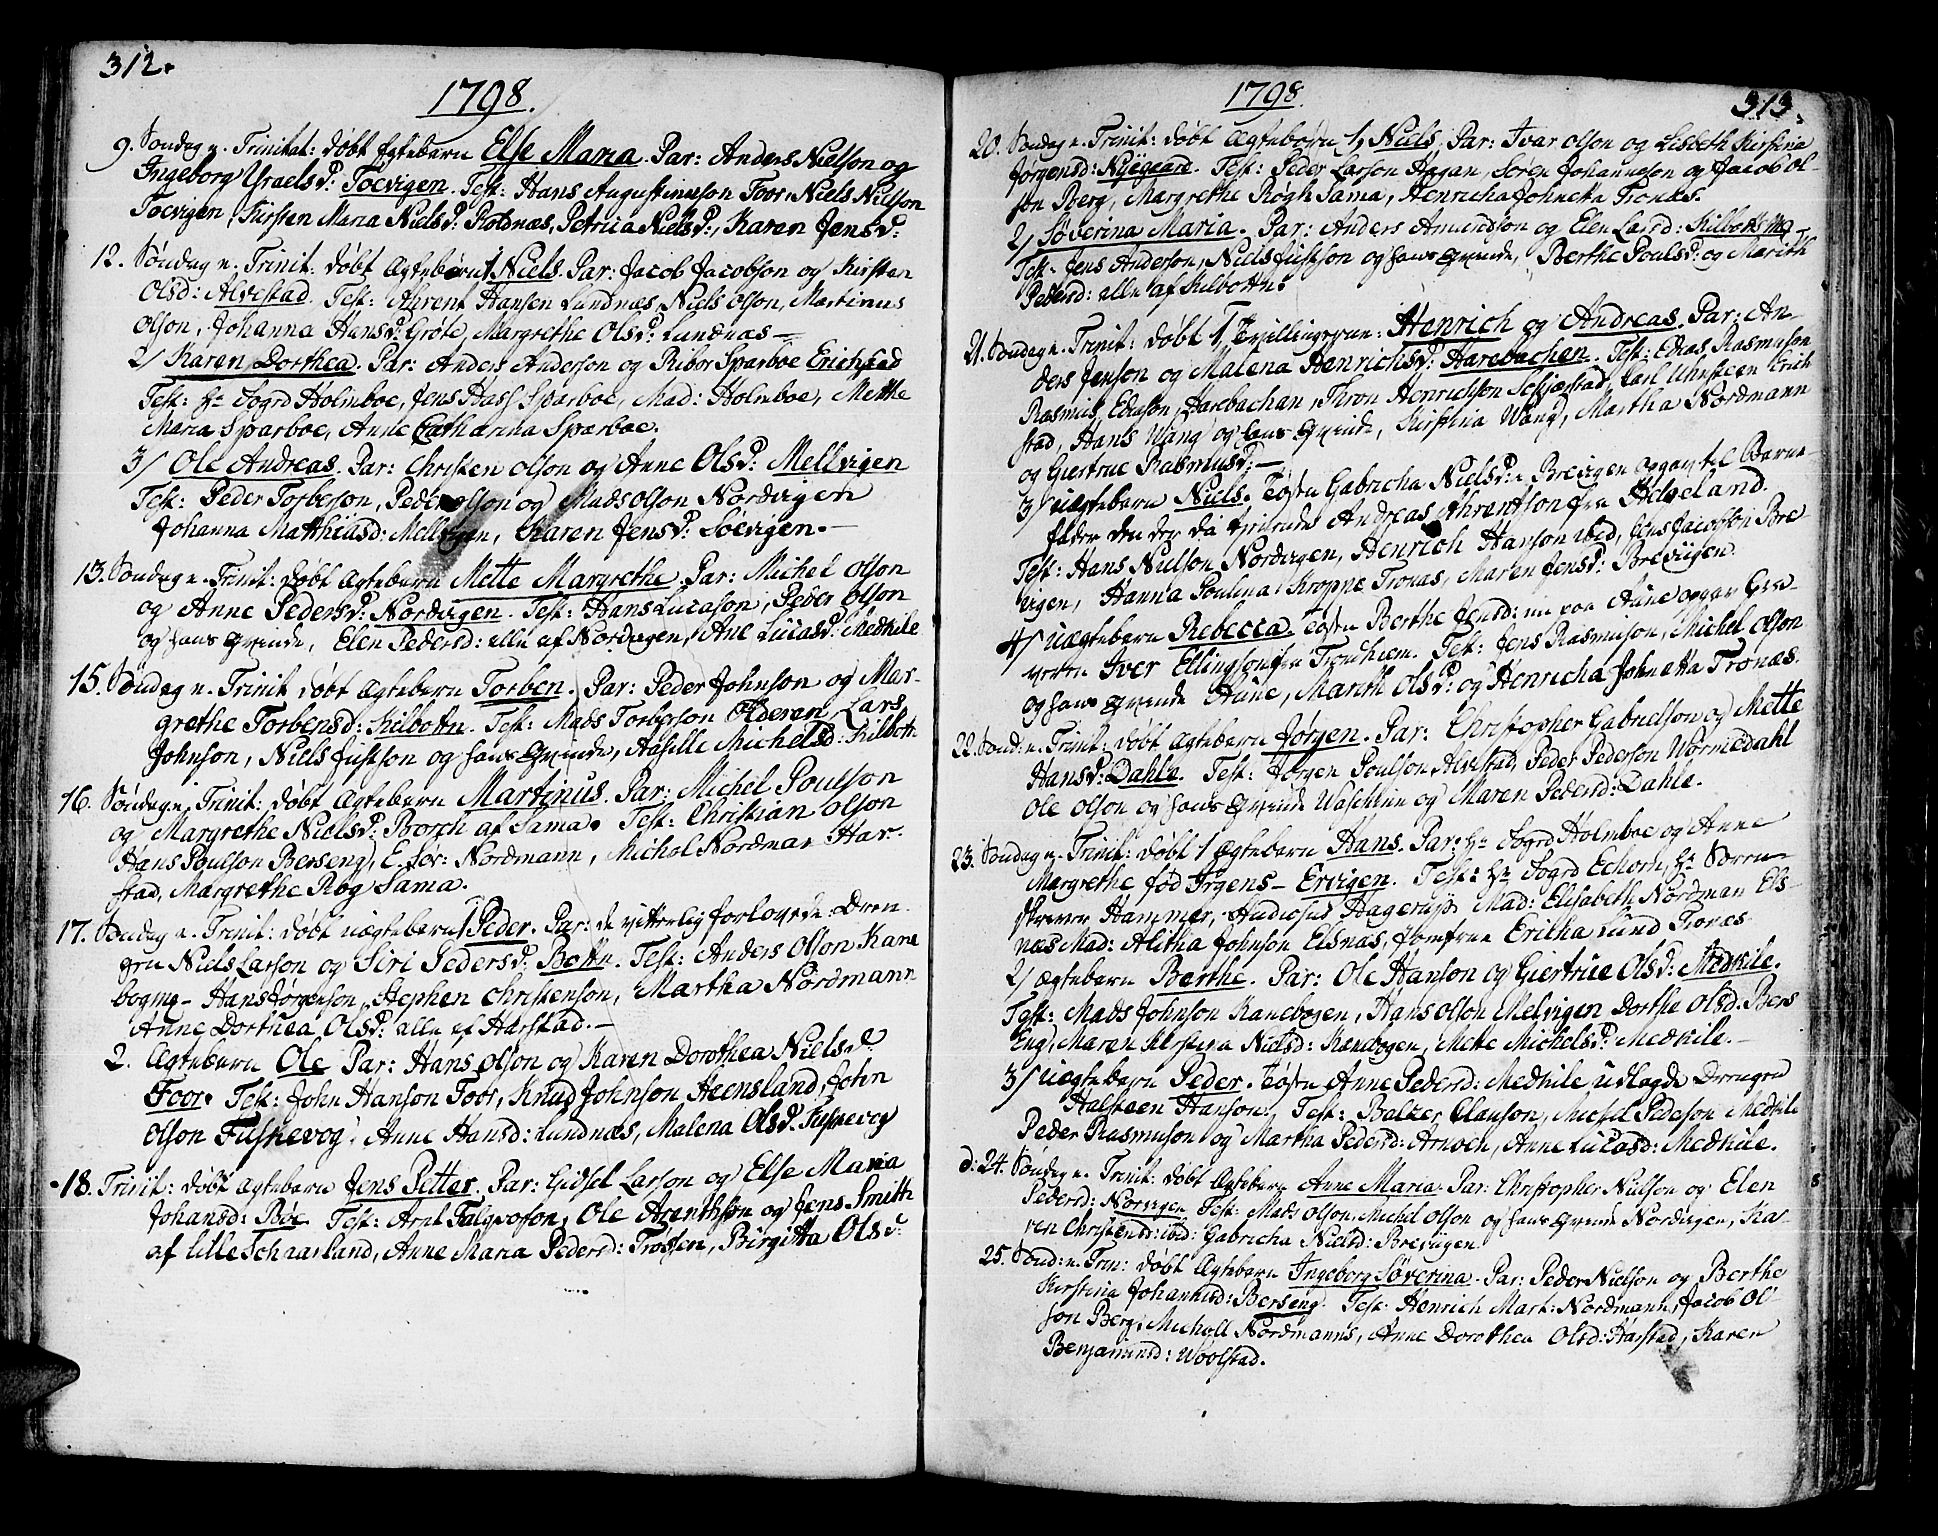 312.
1798.
9. Söndag n. Trinitat: döbt Egtebarn Else Maria. Par: Anders Nielson og
Ingeborg Ysraelsd: Toevigen. Test: Hans Augustinusson Foor, Niels Nielson
Toevigen, Kirsten Maria Nielsd: Rotdnæs, Petricia Nielsd:, Karen Jensd:
12. Söndag n. Trinit: döbt Ægtebørn 1, Niels. Par: Jacob Jacobson og Kirsten
Olsd: Alvestad. Test: Ahrent Hansen Lundnæs, Niels Olson, Martinus
Olson, Johanna Hansd: Gröte, Margrethe Olsd: Lundnæs
2/ Karen Dorthea. Par: Anders Anderson og Ribor Sparboe Erichstad
Test: Hr Sogrd Holmboe, Jens Hass Sparboe, Mad: Holmboe, Mette
Maria Sparboe, Anne Catharina Sparboe.
3/ Ole Andreas. Par: Christen Olson og Anne Olsd: Mellvigen
Test: Peder Torberson, Peder Olson og Mads Olson Nordvigen
Johanna Matthiasd: Mellvigen, Karen Jensd: Toevigen.
13. Söndag n. Trinit: döbt Ægtebarn Mette Margrethe. Par: Michel Olson
og Anne Pedersd: Nordvigen. Test: Hans Lucason, Peder Olson
og hans Qvinde, Elen Pedersd: alle af Nordvigen, Ane Lucasd: Medkile
15. Söndag n. Trinit döbt Ægtebarn Torben. Par: Peder Johnson og Mar-
grethe Torbensd: Kilbottn. Test: Mads Torberson Elderen, Lars
Johnson, Niels Justson og hans Qvinde, Aasille Michelsd: Kilbottn
16. Söndag n. Trinit: döbt Ægtebarn Martinus. Par: Michel Poulson
og Margrethe Nielsd: Borch af Sama. Test: Christian Olson
Hans Poulson Berseng, E. Sör: Nordmann, Michol Nordman Har-
stad, Margrethe Rog Sama.
17. Söndag n. Trinit: döbt uægtebarn 1 Peder. Par: de vitterlig forlovede Dren-
gen Niels Larson og Siri Pedersd: Bottn. Test: Anders Olson Kane
bogmo- Hans Jörgenson, Stephen Christenson, Martha Nordmann
Anne Dorthea Olsd: alle af Harstad.
2. Ægtebarn Ole Par: Hans Olson og Karen Dorothea Nielsd
Foor. Test: John Hanson Foor, Knud Johnson Heensland, John
Olson Fuskevog, Anne Hansd: Lundnæs, Malena Olsd. Fuskevog
18. Trinit: döbt Ægtebarn Jens Petter. Par: Gidsel Larson og Else Maria
Johansd: Böe Test: Arnt Falqvoson, Ole Arentsson og Jens Smith
af lille Schaarland, Anne Maria Pedersd: Trossen, Birgitta Olsd:
1798
313.
20. Söndag n. Trinit: döbt Ægtebørn 1, Niels. Par: Ivar Olson og Lisbeth Kirstina
Jörgensd: Nyegaard. Test: Peder Larson Hagan, Sören Johanneson og Jacob Ol-
son Berg, Margrethe Rögh Sama, Henricha Johnetta Tronæs.
2/ Söverina Maria. Par: Anders Amundson og Elen Larsd: Kilbottsmo-
Test- Jens Anderson, Niels Justson og hans Qvinde, Berthe Poulsd: og Marith
Pedersd: alle af Kilbottn.
21. Söndag n. Trinit: döbt 1, Tvillingerne: Henrich og Andreas. Par: An-
ders Jenson og Malena Henrichsd: Harebachen. Test: Edias Rasmuson
Rasmus Ediason, Harebachan, Thron Henrichson Schjæstad, Carl Uhrsteen Erich
stad, Hans Wang og hans Qvinde, Kirstina Wang, Martha Nordmann
og Giertrue Rasmusd:
3/ Uægtebarn Niels. Tøsen Gabricha Nielsd: i Brevigen opgav til Barne-
fader den der da tienende Andreas Ahrentson fra Helgeland.
Test: Hans Nielson Nordvigen, Henrich Hanson ibid, Jens Jacobson Bre
vigen, Hanna Poulina Kroppe Tronæs, Maren Jensd: Breviigen.
4/ Uægtebarn Rebecca. Tøsen Berthe Jensd: nu paa Aune opgav Gre-
neren Iver Ellingson fra Tromhiem. Test: Jens Rasmuson, Michel Olson
og hans Qvinde Aune, Marith Olsd: og Henricha Johnetta Tronæs.
22. Sönd: n. Trinit: döbt Ægtebarn Jørgen. Par: Christopher Gabrielson og Mette
Hansd: Dahle. Test: Jørgen Poulson Alvestad, Peder Pederson Wormedahl
Ole Olson og hans Qvinde Waschtin og Maren Pedersd: Dahle.
23. Söndag n. Trinit: döbt 1 Ægtebarn Hans. Par: Hr Sogrd Holmboe og Anne
Margrethe född Irgens- Ervigen. Test: Hr Sogrd Echorn, Hr Soren-
skriver Hammer, Studiosus Hagerup Mad: Elisabeth Nordman Els-
næs Mad: Alitha Johnson Elsnæs, Jomfrue Eritha Lund Tronæs-
2/ Ægtebarn Berthe. Par: Ole Hanson og Giertrue Olsd: Medkile.
Test: Mads Johnson Kanebogen, Hans Olson Melvigen Dorthe Olsd. Bers
Eng, Maren Kirstina Nielsd: Kanebogen, Mette Michelsd: Medkile.-
3/ Uægtebarn Peder. Tøsen Anne Pedersd: Medkile udlagde Drengen
Halsteen Hanson, Test: Baltzer Clauson, Michel Pedeson Medkile
Peder Rasmuson og Martha Pedersd: Arnoen, Anne Lucasd: Medkile.
d: 24. Söndag n. Trinit: döbt Ægtebarn Anne Maria. Par: Christopher Nielson og Elen
Pedersd: Norvigen Test: Mads Olson, Michel Olson og hans Qvinde Nordvigen, Ka-
ren Christensd: ibid: Gabricha Nielsd: Breviigen
25. Sönd: n. Trin: döbt Ægtebarn Ingeborg Söverina. Par: Peder Nielson og Berthe
Kirstina Johannisd: Berseng. Test. Henrich Mart: Nordmann, Jacob Ol-
son Berg, Micholl Nordmanns, Anne Dorothea Olsd: Harstad, Karen
Benjaminsd: Woolstad.